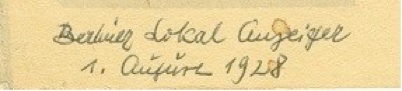 Berliner Lokal Anzeiger
1. August 1928